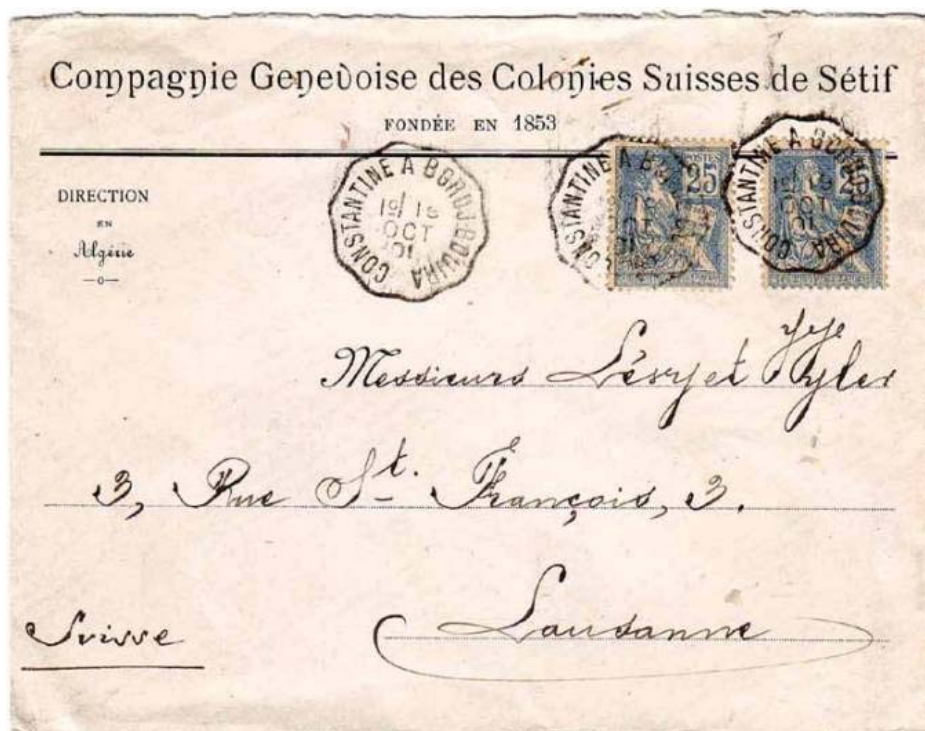 Compagnie Genevoise des Colonies Suisses de Sétif
FONDÉE EN 1853
DIRECTION
EN
Algérie
CONSTANTINE A BORDJ-BOUIRA
OCT
01
CONSTANTINE A B
25
CONSTANTINE A BORDJ BOUIRA
OCT
01
25
Messieurs Lévy et
3, Rue St. François, 3.
Lausanne
Suisse